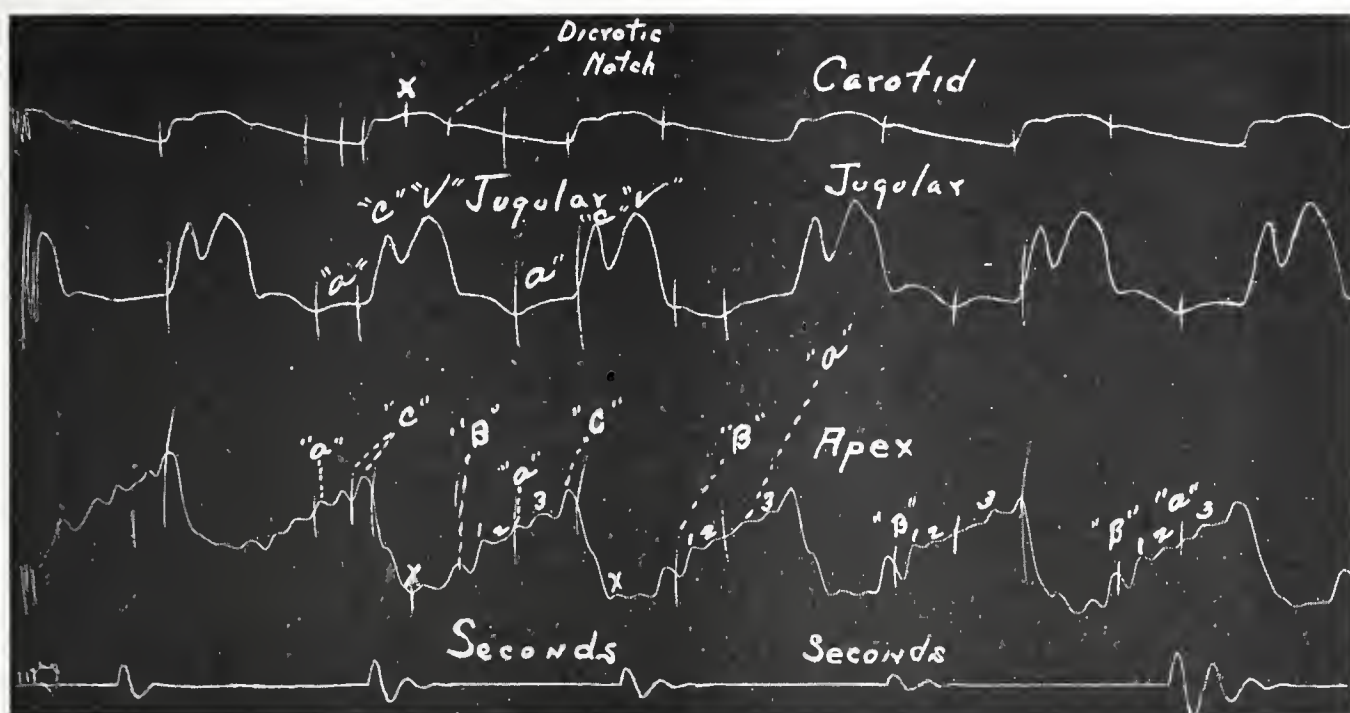 Dicrotic
Notch
Carotid
x
"c" "V" Jugular "c" "V" Jugular
"a" "a"
"a"
"a" "c" "B" "a" "c" "B" Apex
1 2 3 1 2 3 "B" 1 2 3 "B" 1 2 "a" 3
x x
Seconds Seconds